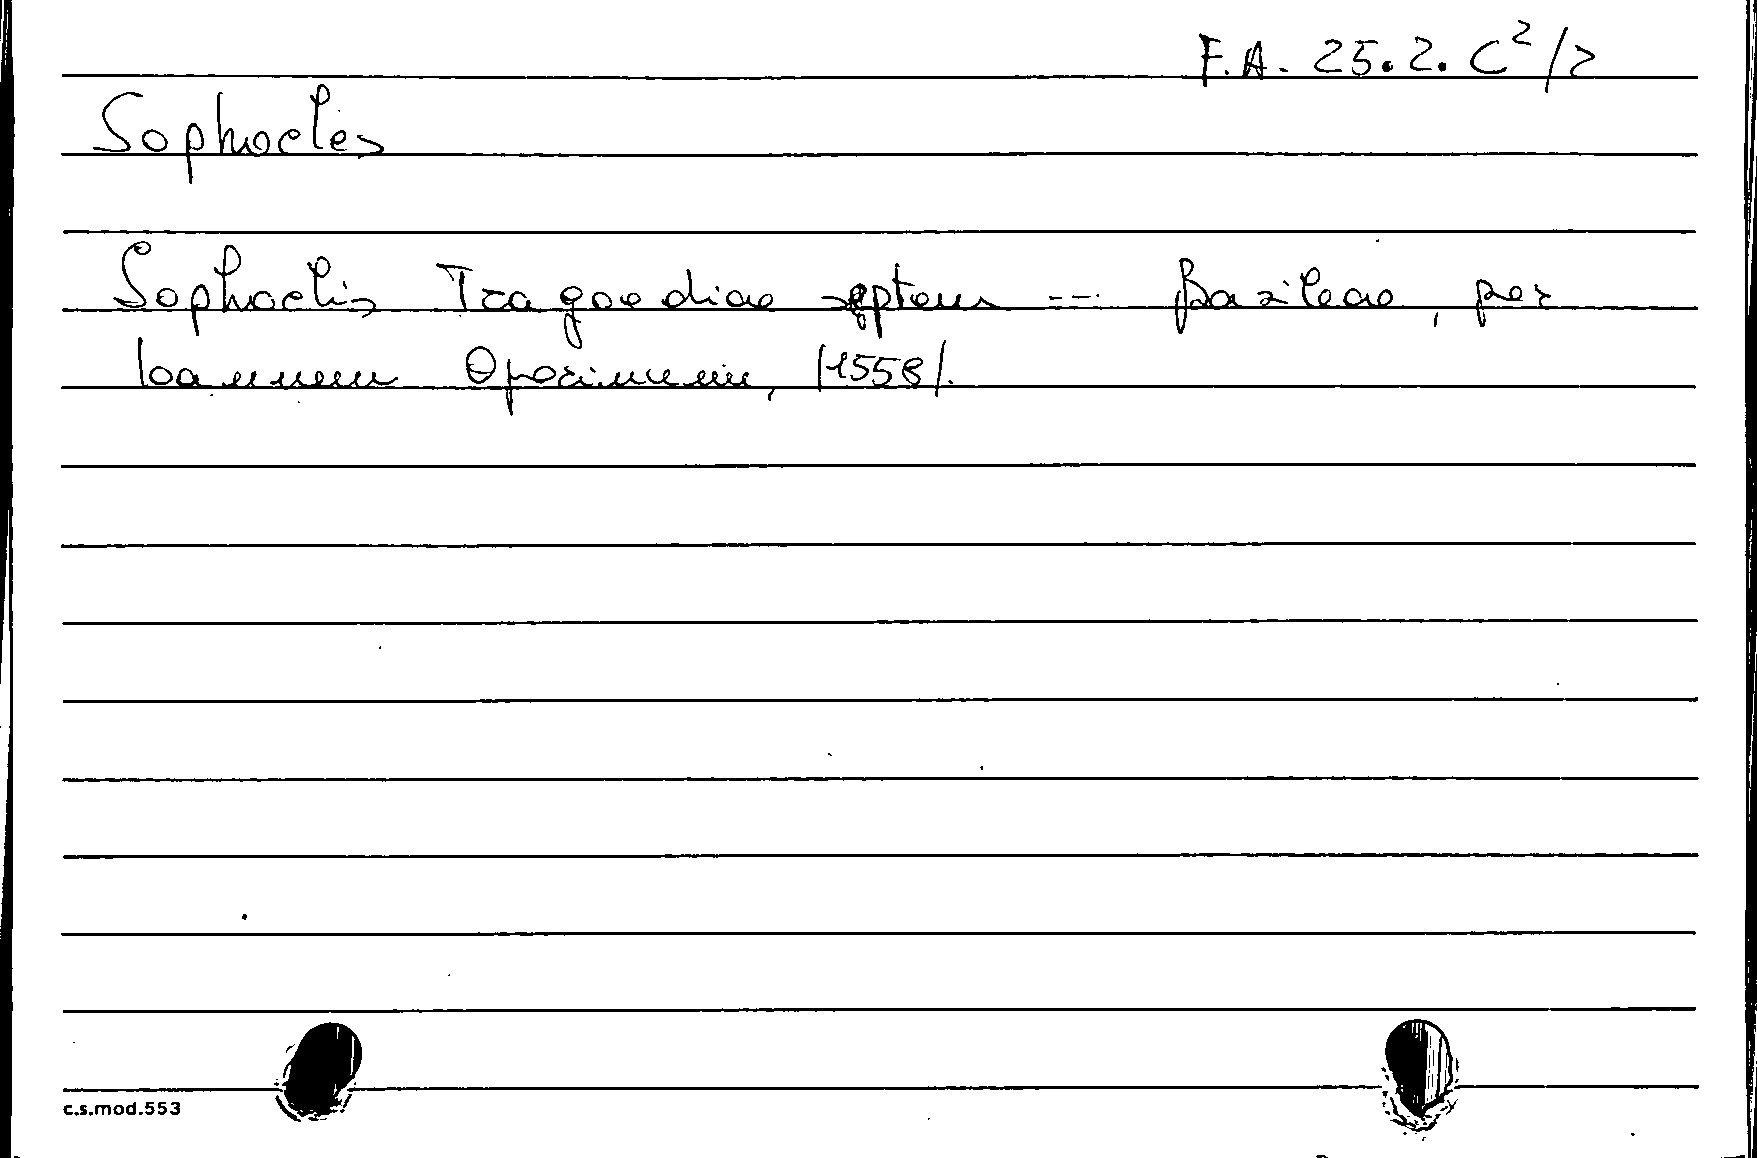 F.A. 25.2. C²/2
Sophocles
Sophoclis Tragoediae septem -- Basileae, per
Ioannem Oporinum, |1558|.
c.s.mod.553